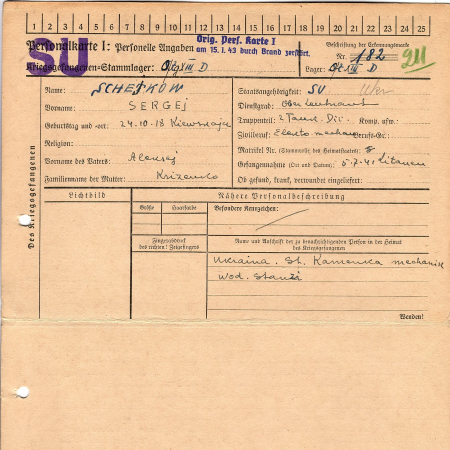 1 2 3 4 5 6 7 8 9 10 11 12 13 14 15 16 17 18 19 20 21 22 23 24 25
Personalkarte I: Personelle Angaben
Orig. Pers. Karte I
am 15. I. 43 durch Brand zerstört.
Beschriftung der Erkennungsmarke
Nr. 182
Kriegsgefangenen-Stammlager: Oflag XIII D
Lager: Ofl XIII D
SU
Des Kriegsgefangenen
Name: SCHETKOW
Vorname: SERGEJ
Geburtstag und -ort: 24.10.18
Religion:
Vorname des Vaters: Aleksej
Familienname der Mutter:
Staatsangehörigkeit: SU
Dienstgrad: Oberleutnant
Truppenteil: 2 Komp. usw.
Zivilberuf: Berufs-Gr.:
Matrikel Nr. (Stammrolle des Heimatstaates):
Gefangennahme (Ort und Datum): 5.7.41 Litauen
Ob gesund, krank, verwundet eingeliefert:
Lichtbild
Nähere Personalbeschreibung
Größe
Haarfarbe
Besondere Kennzeichen:
Fingerabdruck
des rechten! Zeigefingers
Name und Anschrift der zu benachrichtigenden Person in der Heimat
des Kriegsgefangenen
Ukraina. St. Kamenka
Wod.
Wenden!